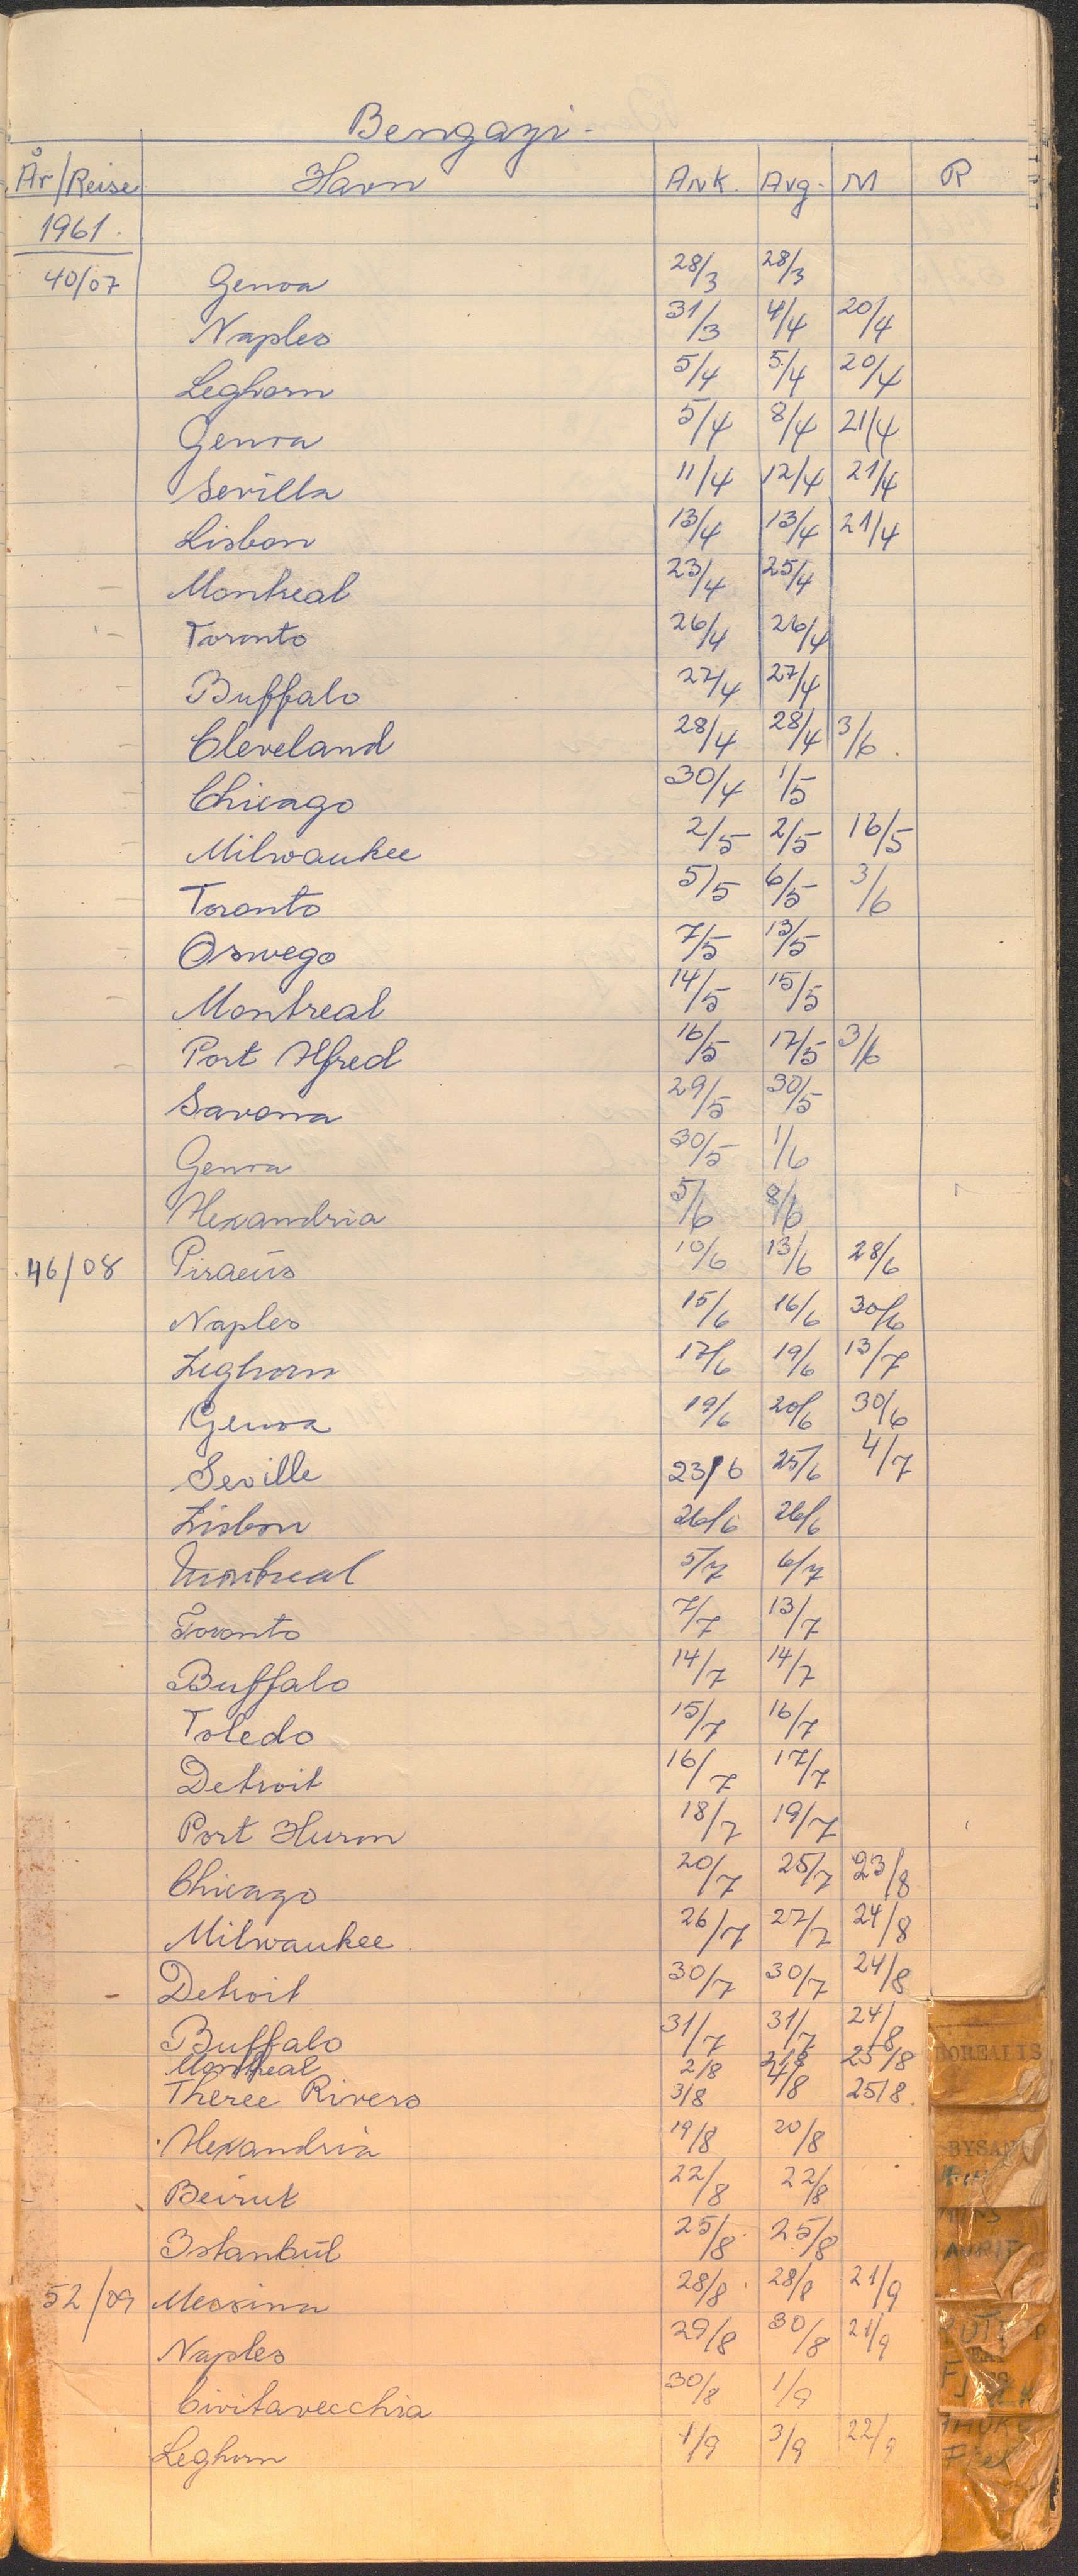 Bengazi.
År/Reise Havn Ank. Avg. M R
1961.
40/07 Genoa 28/3 28/3
Naples 31/3 4/4 20/4
Leghorn 5/4 5/4 20/4
Genoa 5/4 8/4 21/4
Sevilla 11/4 12/4 21/4
Lisbon 13/4 13/4 21/4
Montreal 23/4 25/4
Toronto 26/4 26/4
Buffalo 27/4 27/4
Cleveland 28/4 28/4 3/6
Chicago 30/4 1/5
Milwaukee 2/5 2/5 16/5
Toronto 5/5 6/5 3/6
Oswego 7/5 13/5
Montreal 14/5 15/5
Port Alfred 16/5 17/5 3/6
Savona 29/5 30/5
Genoa 30/5 1/6
Alexandria 5/6 8/6
46/08 Piraeus 10/6 13/6 28/6
Naples 15/6 16/6 30/6
Leghorn 17/6 19/6 13/7
Genoa 19/6 20/6 30/6
Seville 23/6 25/6 4/7
Lisbon 26/6 26/6
Montreal 5/7 6/7
Toronto 7/7 13/7
Buffalo 14/7 14/7
Toledo 15/7 16/7
Detroit 16/7 17/7
Port Huron 18/7 19/7
Chicago 20/7 25/7 23/8
Milwaukee 26/7 27/7 24/8
Detroit 30/7 30/7 24/8
Buffalo 31/7 31/7 24/8
Montreal 2/8 2/8 25/8
Theree Rivers 3/8 4/8 25/8.
Alexandria 19/8 20/8
Beirut 22/8 22/8
Istanbul 25/8 25/8
52/09 Messina 28/8 28/8 21/9
Naples 29/8 30/8 21/9
Civitavecchia 30/8 1/9
Leghorn 1/9 3/9 22/9
BOREALIS